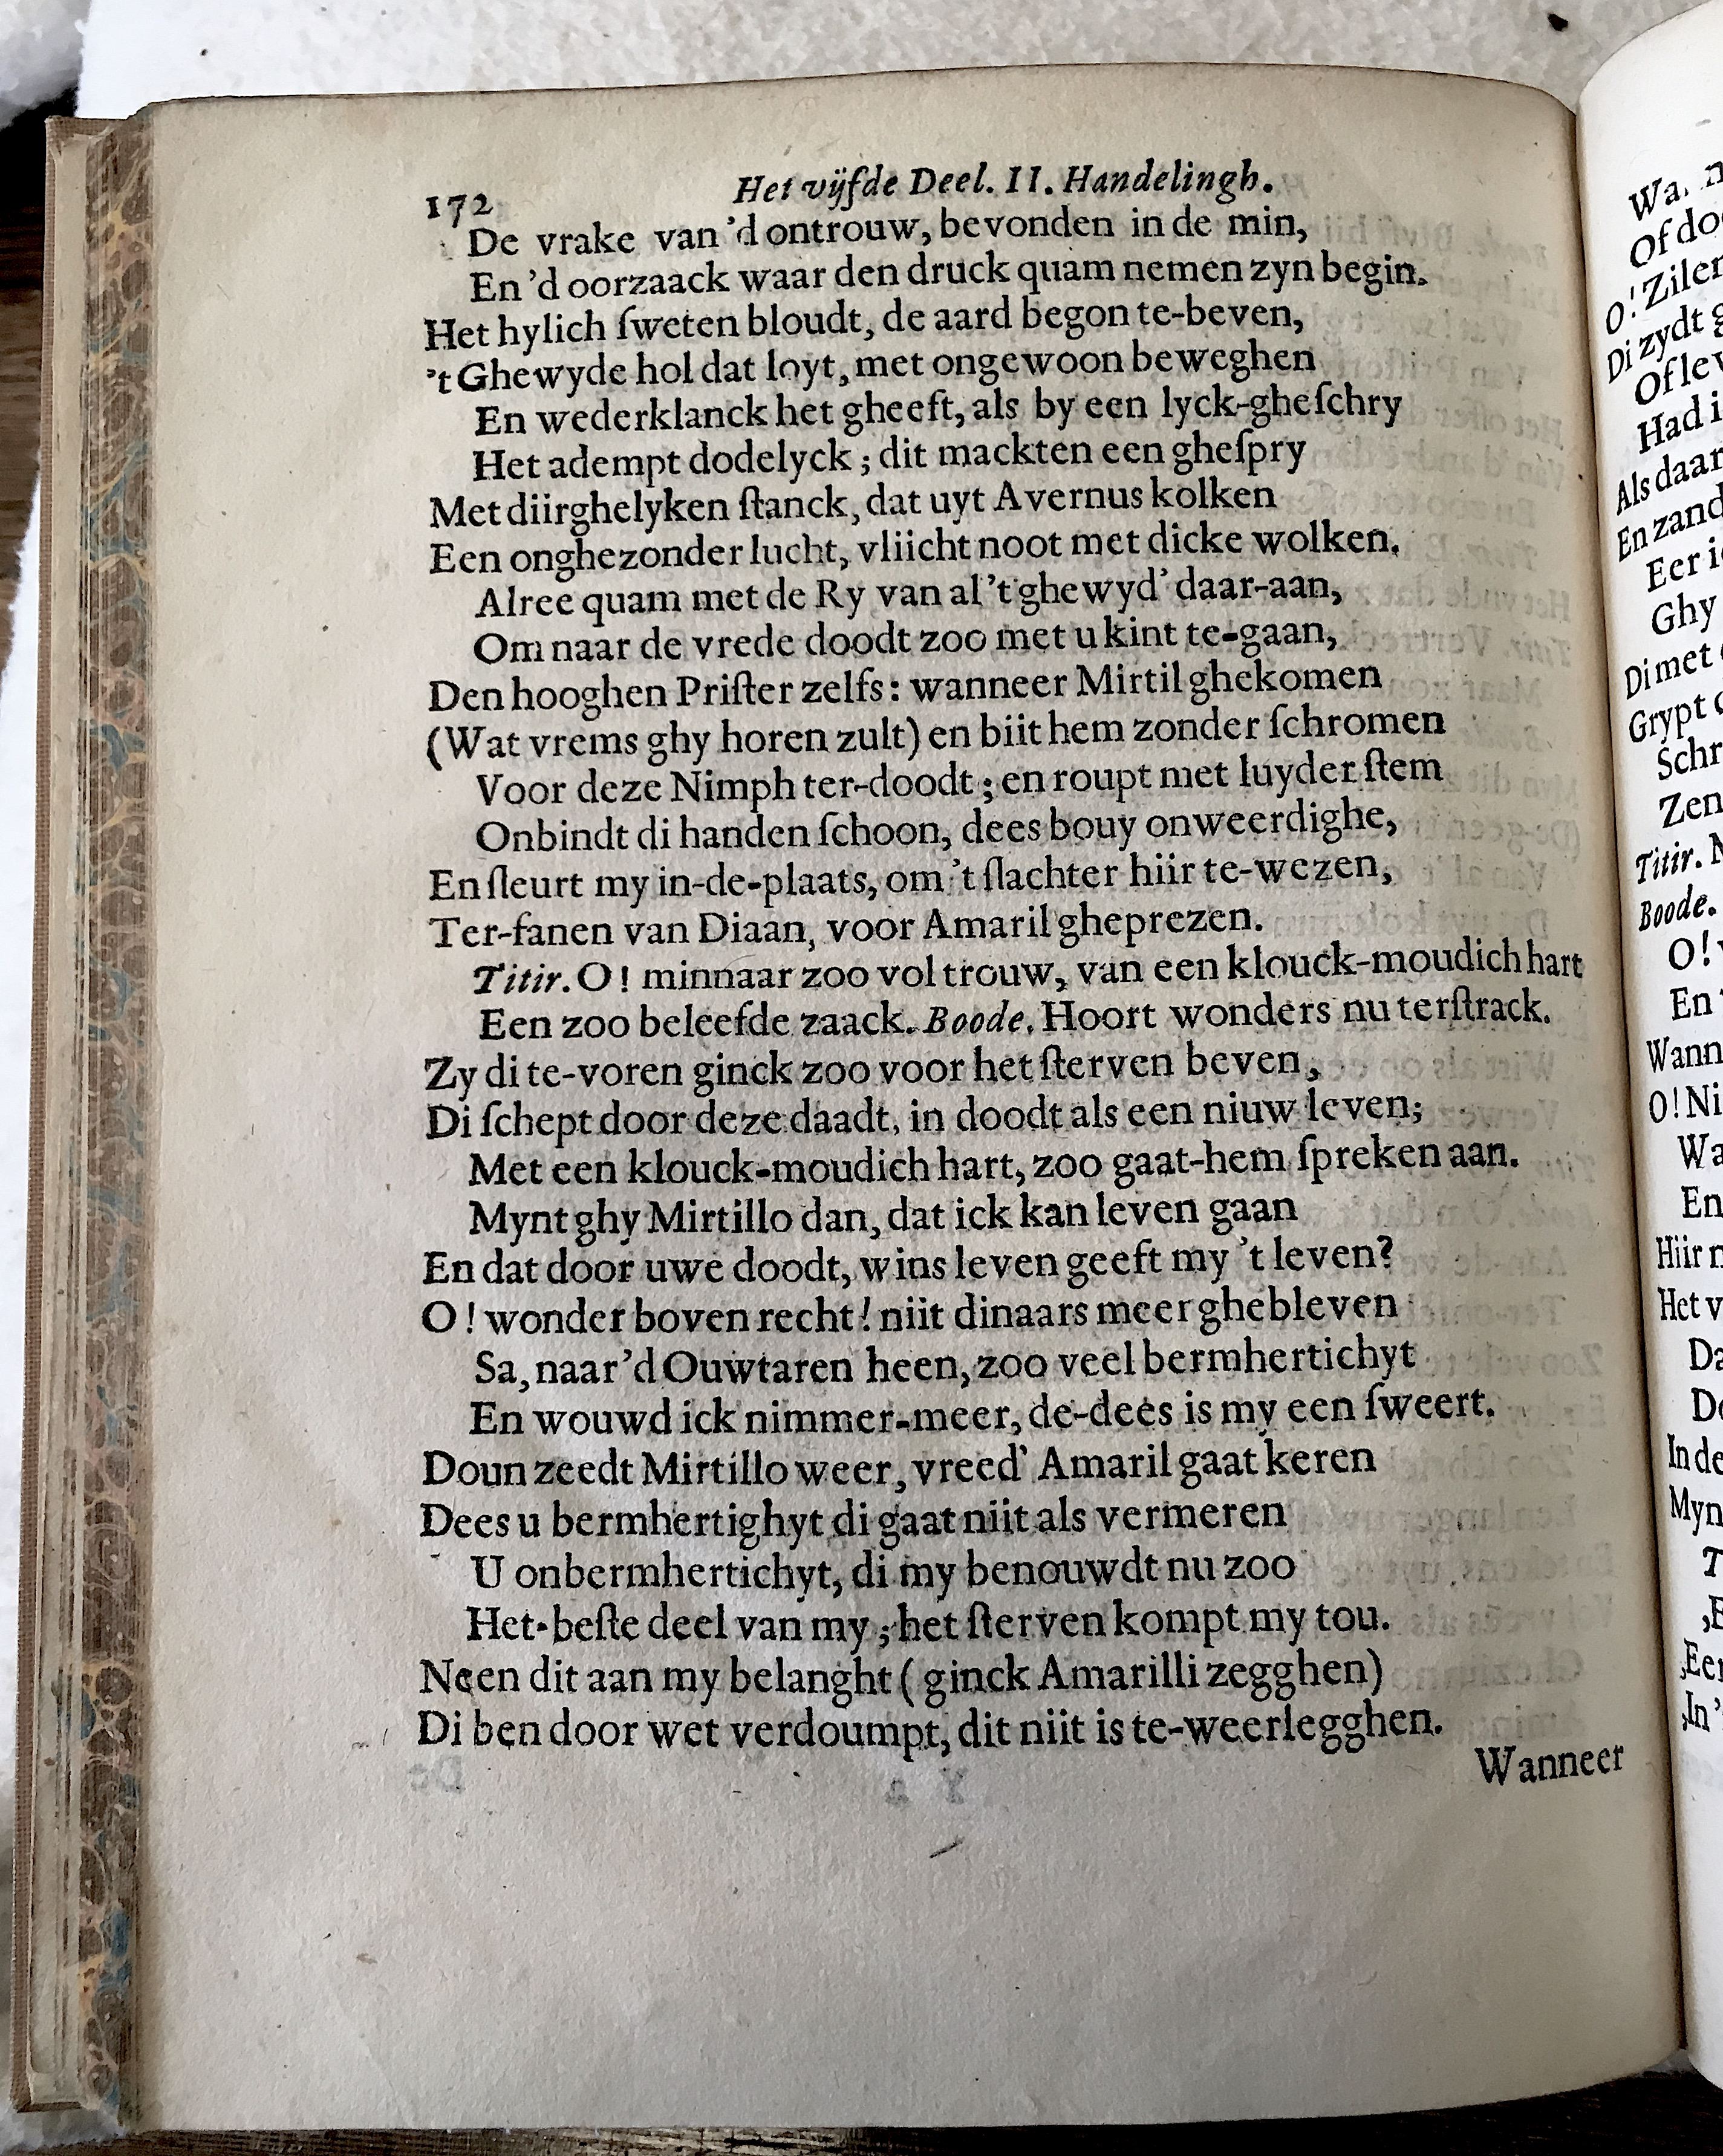 172 Het vijfde Deel. II. Handelingh.
De vrake van 'd ontrouw, bevonden in de min,
En 'd oorzaack waar den druck quam nemen zyn begin.
Het hylich ſweten bloudt, de aard begon te-beven,
't Ghewyde hol dat loyt, met ongewoon beweghen
En wederklanck het gheeft, als by een lyck-gheſchry
Het adempt dodelyck; dit mackten een gheſpry
Met diirghelyken ſtanck, dat uyt Avernus kolken
Een onghezonder lucht, vliicht noot met dicke wolken.
Alree quam met de Ry van al 't ghewyd' daar-aan,
Om naar de vrede doodt zoo met u kint te-gaan,
Den hooghen Priſter zelfs: wanneer Mirtil ghekomen
(Wat vrems ghy horen zult) en biit hem zonder ſchromen
Voor deze Nimph ter-doodt; en roupt met luyder ſtem
Onbindt di handen ſchoon, dees bouy onweerdighe,
En ſleurt my in-de-plaats, om 't ſlachter hiir te-wezen,
Ter-fanen van Diaan, voor Amaril gheprezen.
Titir. O! minnaar zoo vol trouw, van een klouck-moudich hart
Een zoo beleefde zaack. Boode. Hoort wonders nu terſtrack.
Zy di te-voren ginck zoo voor het ſterven beven,
Di ſchept door deze daadt, in doodt als een niuw leven;
Met een klouck-moudich hart, zoo gaat-hem ſpreken aan.
Mynt ghy Mirtillo dan, dat ick kan leven gaan
En dat door uwe doodt, wins leven geeft my 't leven?
O! wonder boven recht! niit dinaars meer ghebleven
Sa, naar 'd Ouwtaren heen, zoo veel bermhertichyt
En wouwd ick nimmer-meer, de-dees is my een ſweert.
Doun zeedt Mirtillo weer, vreed' Amaril gaat keren
Dees u bermhertighyt di gaat niit als vermeren
U onbermhertichyt, di my benouwdt nu zoo
Het-beſte deel van my; het ſterven kompt my tou.
Neen dit aan my belanght (ginck Amarilli zegghen)
Di ben door wet verdoumpt, dit niit is te-weerlegghen.
Wanneer
Of
O! Zilen
Di zydt
Of
Had
Als daar
En zand
Eer
Ghy
Di met
Grypt
Schr
Zen
Titir.
Boode.
O!
En
Wann
O! Ni
Wa
En
Hiir
Het
Da
Do
In de
Myn
T
,E
,Eer
,In